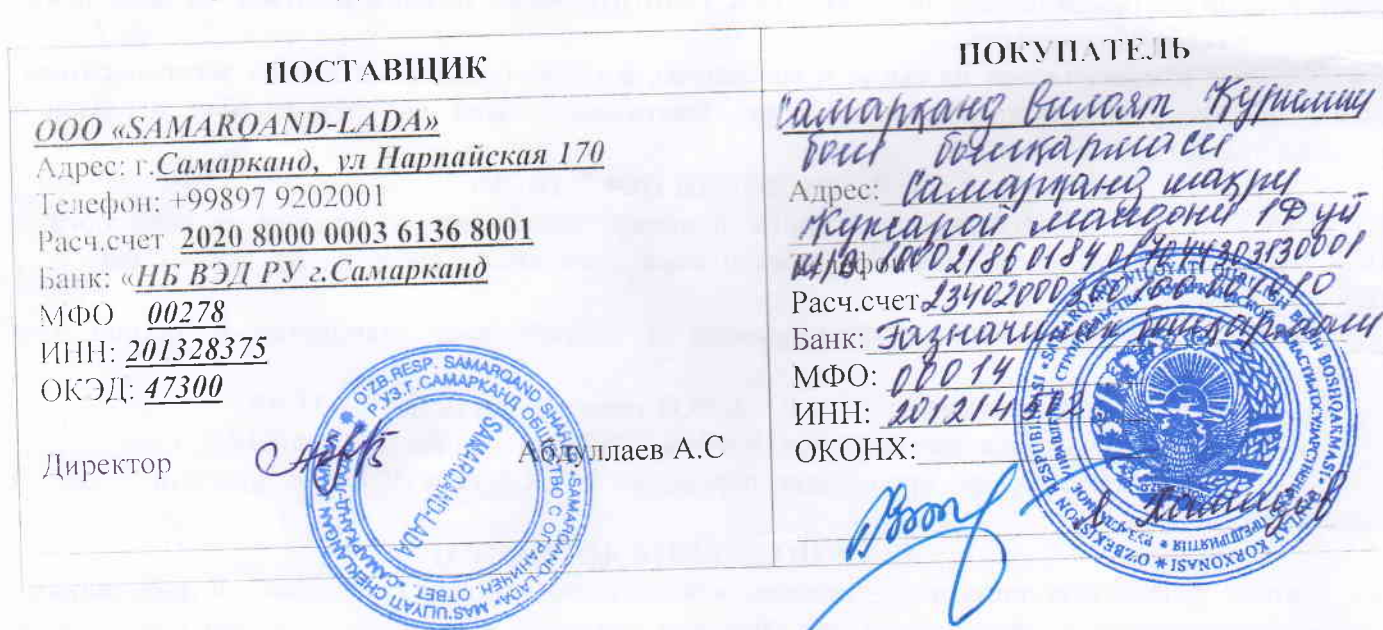 ПОСТАВЩИК
ООО «SAMARQAND-LADA»
Адрес: г.Самарканд, ул Нарпайская 170
Телефон: +99897 9202001
Расч.счет 2020 8000 0003 6136 8001
Банк: «НБ ВЭД РУ г.Самарканд
МФО 00278
ИНН: 201328375
ОКЭД: 47300
Директор Абдуллаев А.С
SAMARQAND-LADA
ПОКУПАТЕЛЬ
Самарқанд вилоят Қурилиш
бош бошкармаси
Адрес: Самарқанд шаҳри
Кўксарой майдони 1Ф уй
Телефон:
Расч.счет 23402000300100001010
Банк: Ғазначилик бошқармаси
МФО: 00014
ИНН:
ОКОНХ: